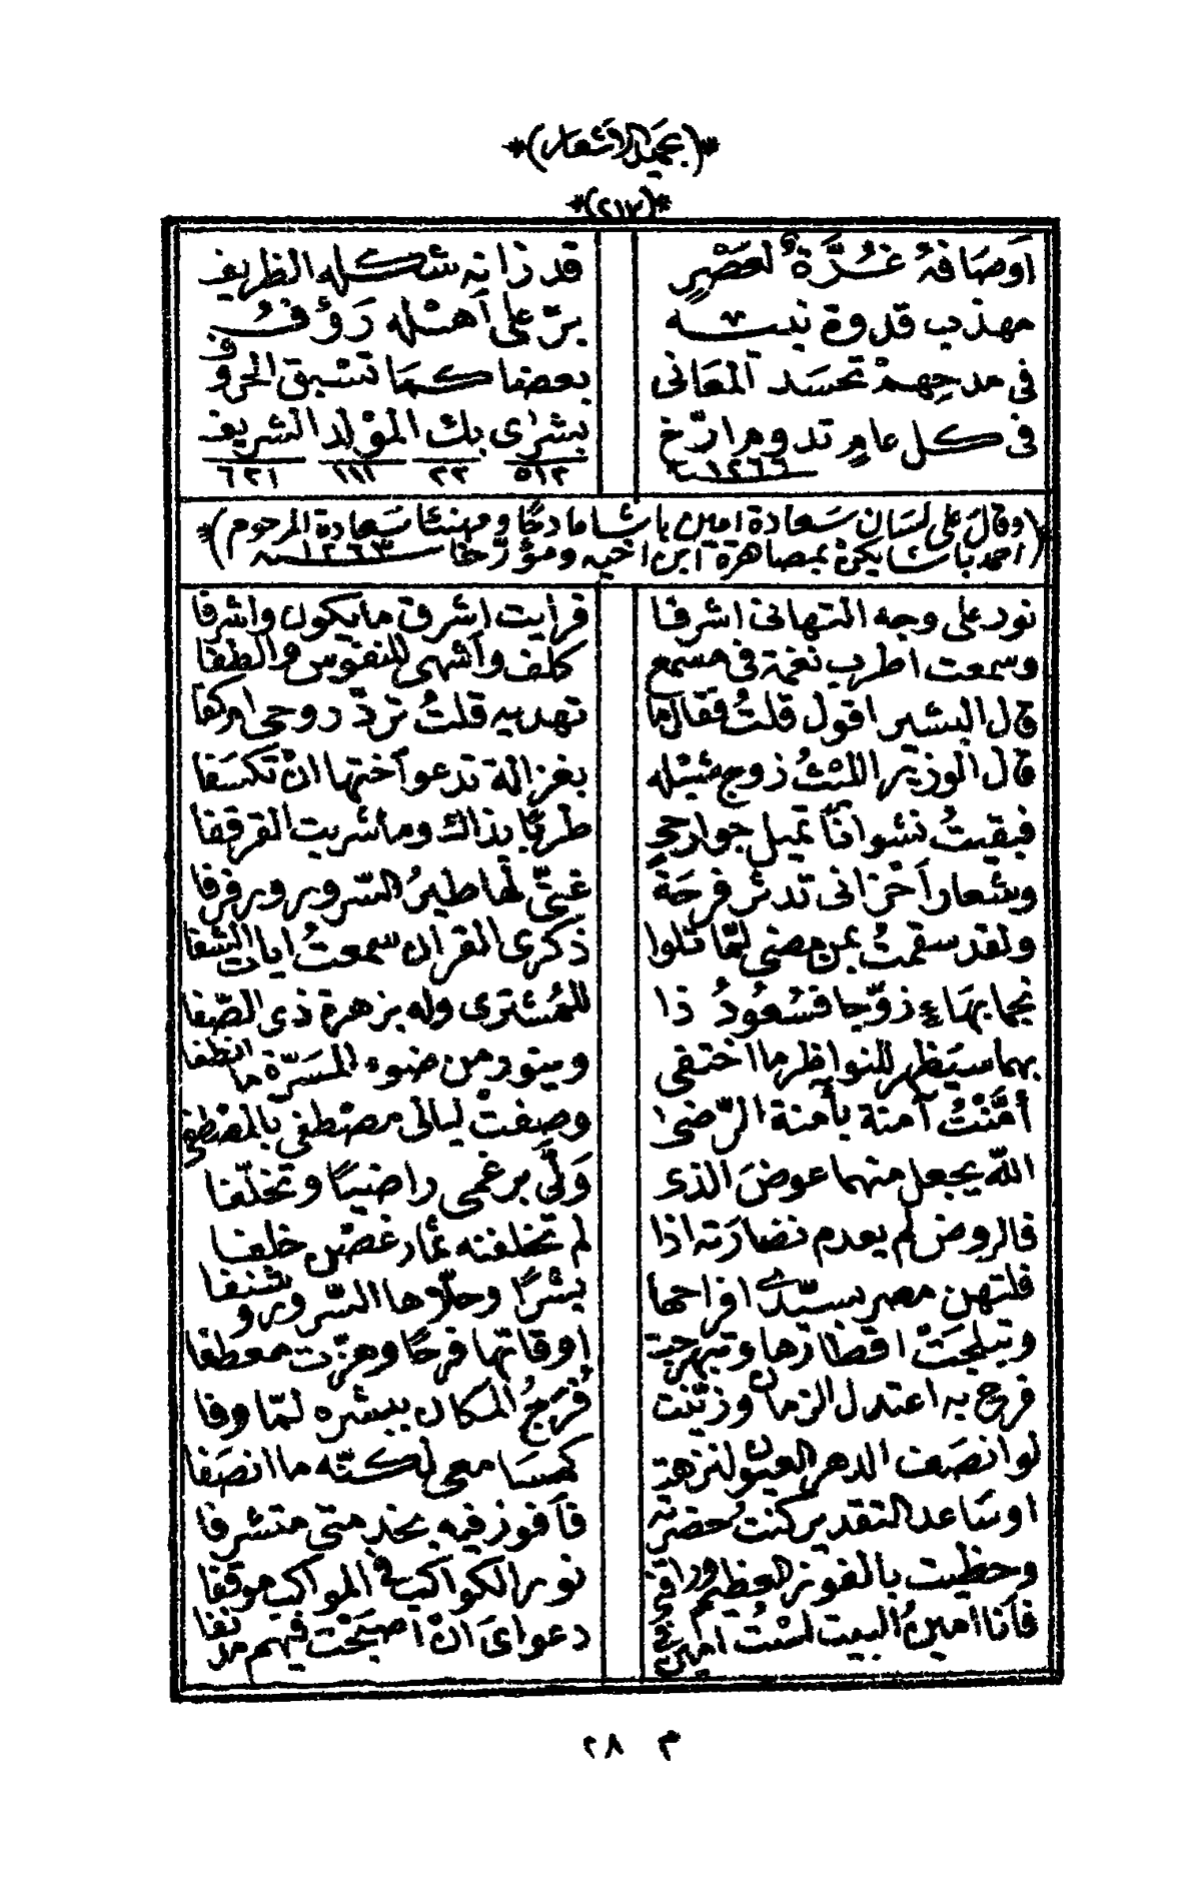 *(بجميل الاشعار)*
*(٢١٧)*
اَوصافهُ غُرَّةُ لعَصْرٍ قد زانه شكله الظريف
مهذب قدوة نبيه برّ على اَهْله رَؤُفُ
فى مدحِهِمْ تحسد المَعَانى بعضا كما تسْبق الحروف
فى كل عامٍ تدوم ارّخ بشرٰى بك الموْلد الشريف
١٢٦٦ ٥١٢ ٢٢ ١١١ ٦٢١
*(وقال على لسان سَعَادة امين باشا مادحًا ومهنئا سَعادة المرحوم
احمد باشا يكنْ بمصاهرة ابن اخيه ومؤرّخا ١٢٦٣ سنه)*
نور على وجه التهانى اشرقا فرأيت اشرق ما يكون واشرفا
وسمعت اطرب نغمة فى مسمع كلف وأشهى للنفوس والطفا
قال البشير اقول قلتُ فقال ما تهديه قلتُ تردّ روحى اوكفا
قال الوزير الليثُ زوج مثيله بغزالة تدعو اُختها انْ تكسَفا
فبقيتُ نشوانًا تميل جوارحى طربًا بذاك وما شربت القرقفا
وشعار اَحْزانى تدثر فرحَةً غنىّ لها طيرُ السّرور ورفرفا
ولقد سقمتُ بمن مضى لمّا تلوا ذكرى القرآن سمعتُ ايات الشفا
نجما بهَاءٍ زوّجا فسُعُودُ ذا للمُشترى وله بزهرة ذى الصّفا
بهما سيَظهر للنواظر ما اختفى وينور من ضوء المسَرّة ما انطفا
أمَّنْتُ آمنة بأمنة الرّضىٰ وصفتْ ليالى مصْطفى بالمصْطفى
اللّه يجعل منهما عوضَ الذى وَلَّى برغمى راضيًا وتخلّفا
فالروض لم يعدم نضارَته اذا لم تخلفنه ثمار غصْن خلفا
فلتهن مصر بسيّدَىْ افراحها بشرًا وحلّاها السّرور وشنفا
وتبلجَتْ اقطارها وتبهرجت اوقاتها فرحًا وهزّت معطفا
فرح به اعتدل الزمان وزيّنت فُرَجُ المكان ببشره لمّا وفا
لو انصَف الدهر العيون لنزهة كهسَا معى لكنّه ما انصَفا
او سَاعد التقدير كنت بحضرته فأفوز فيه بخدمتى متشرفا
وحظيت بالفوز العظيم وراقنى نور الكواكب فى المواكب موقفا
فاَنا امينُ البيت لسْتُ امينَ فى دعواىَ انْ اصبَحْت فيهم مدنفا
م ٢٨